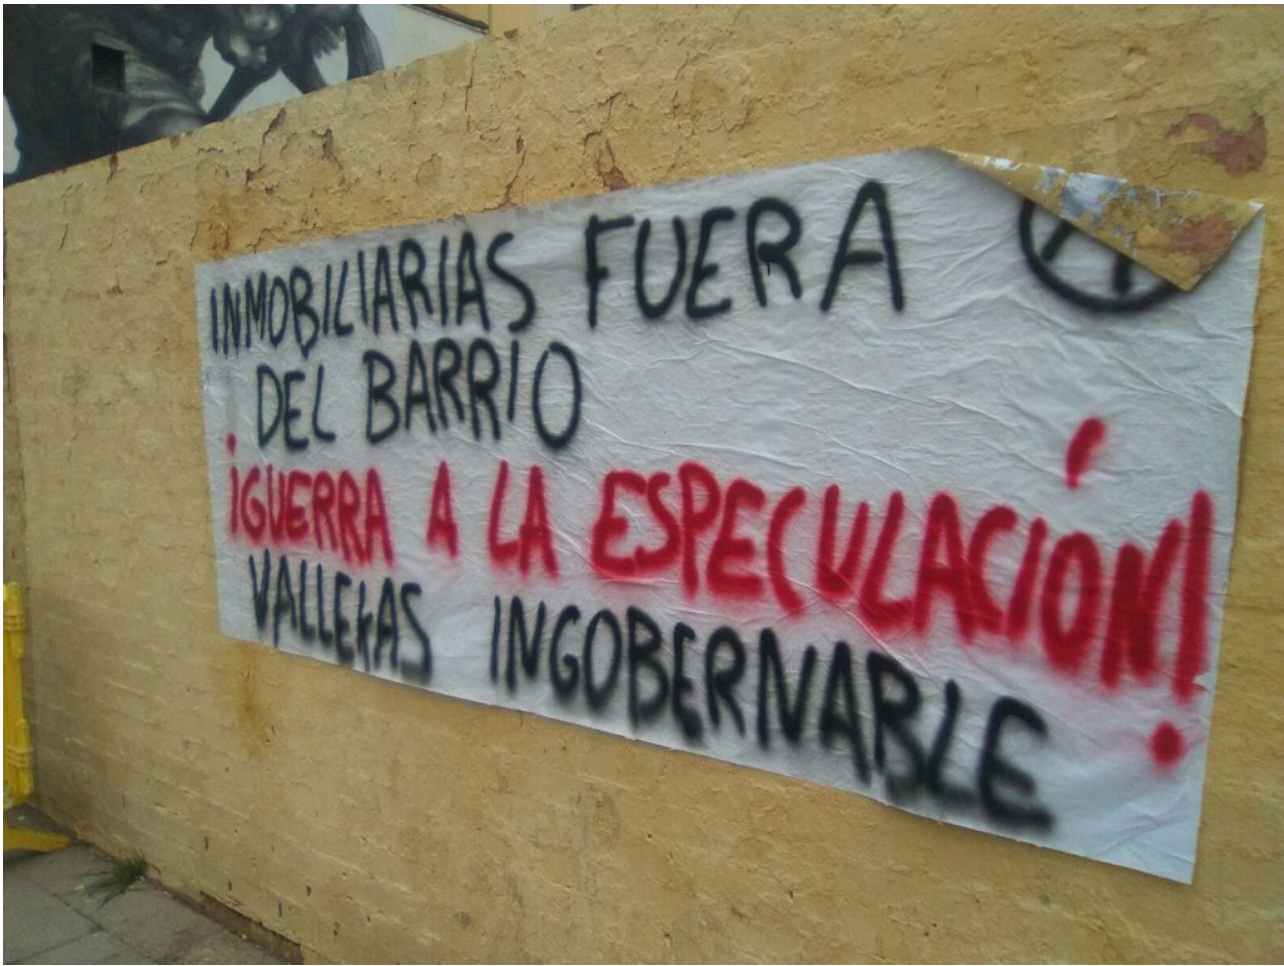 INMOBILIARIAS FUERA
DEL BARRIO
¡GUERRA A LA ESPECULACIÓN!
VALLEKAS INGOBERNABLE